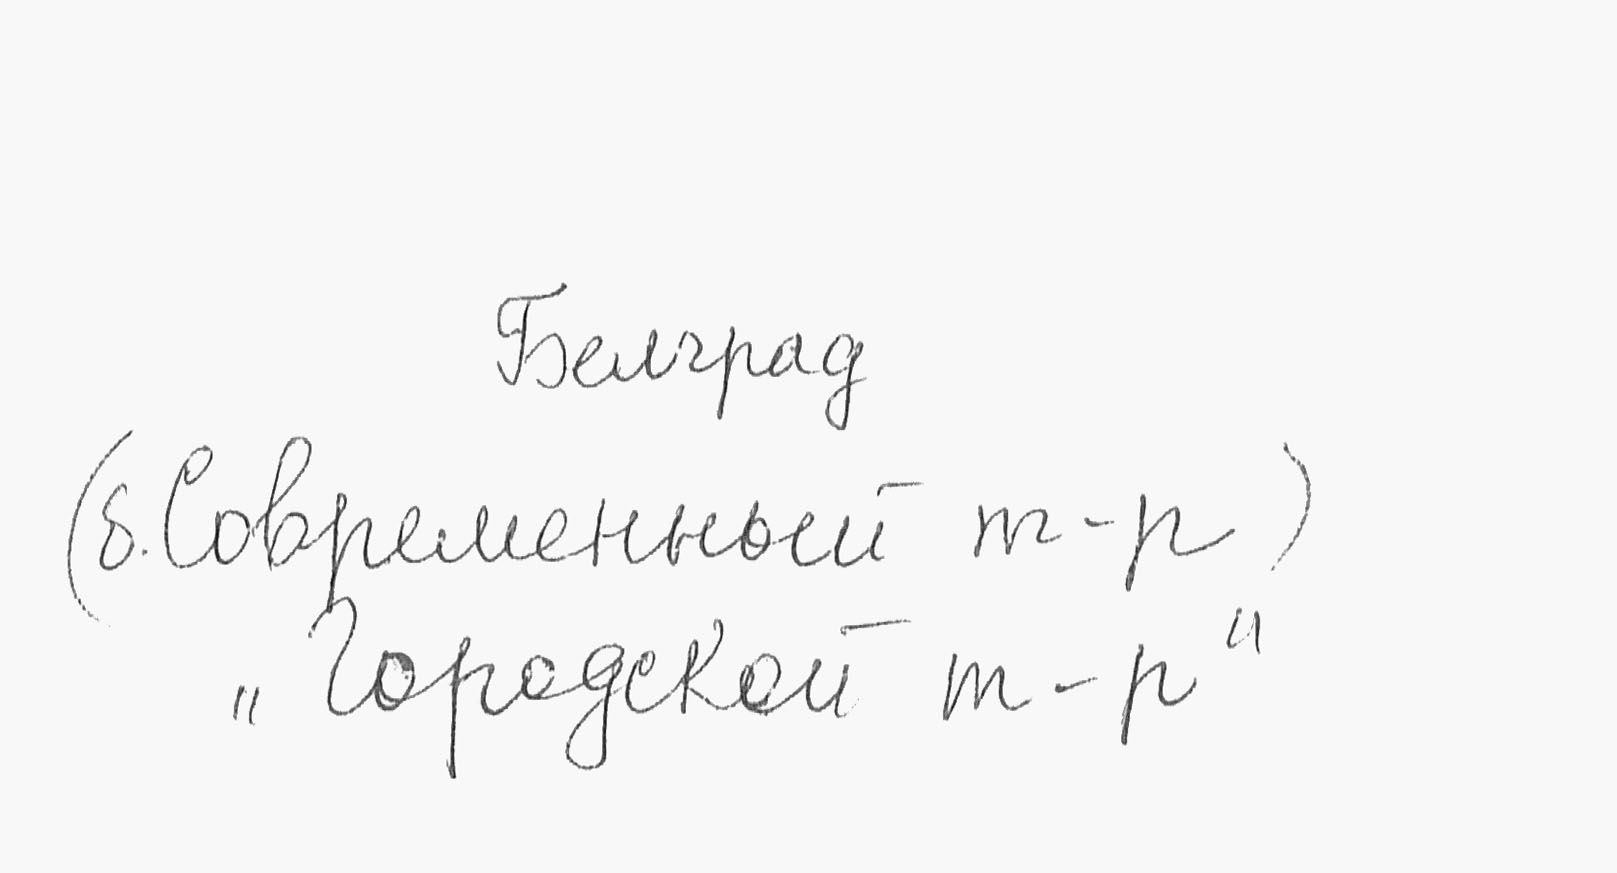 Белград
(б. Современный т-р)
„Городской т-р“